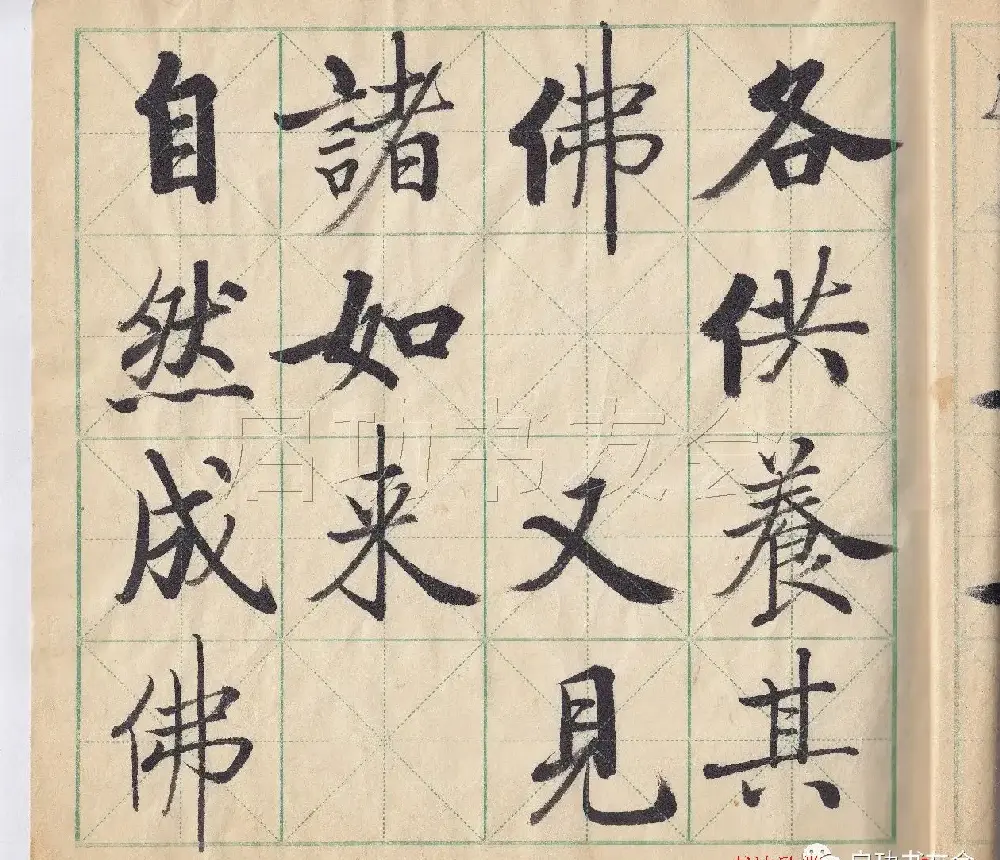 各供養其
佛 又見
諸如来
自然成佛
启功书友会
启功书友会